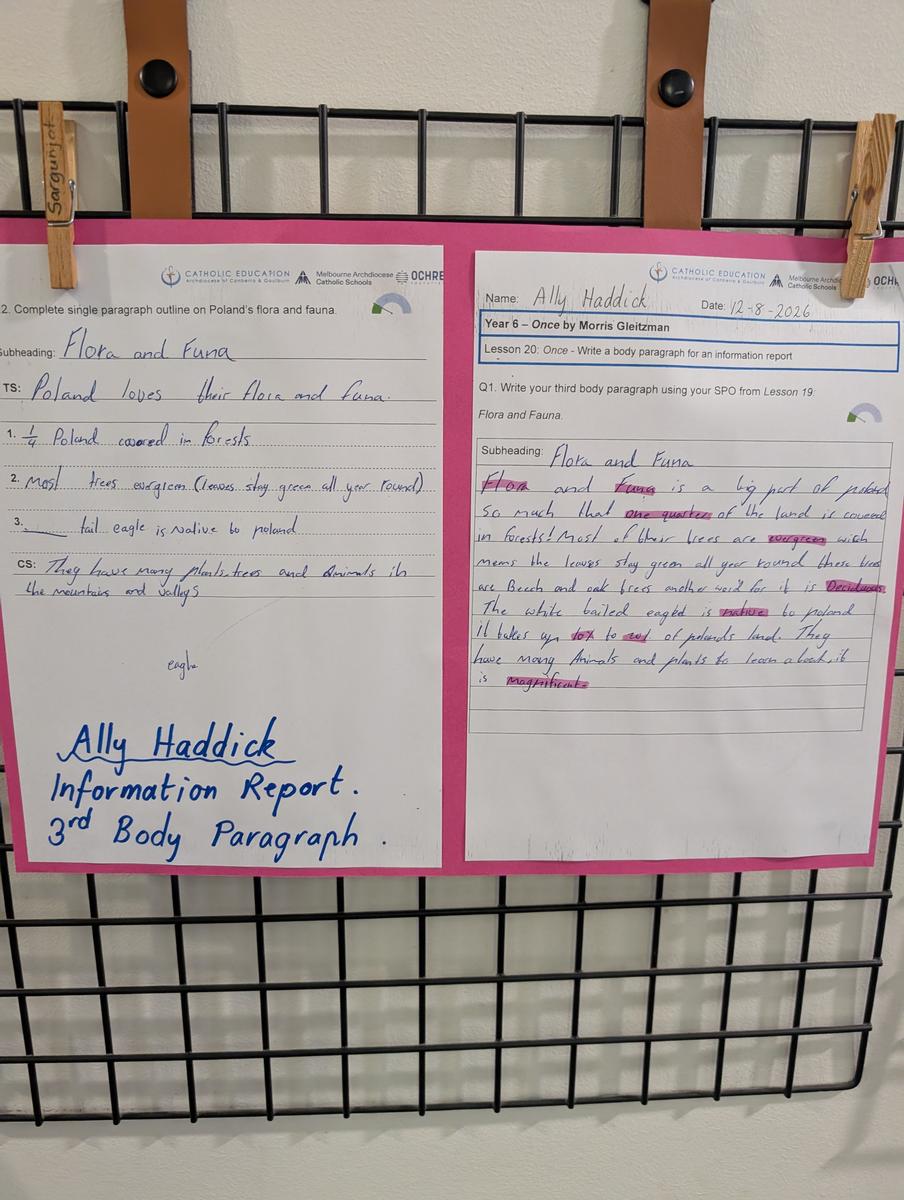 Sargunjot
CATHOLIC EDUCATION
Archdiocese of Canberra & Goulburn
Melbourne Archdiocese
Catholic Schools
OCHRE
2. Complete single paragraph outline on Poland's flora and fauna.
Subheading: Flora and Funa
TS: Poland loves their flora and funa.
1. 1/4 Poland covered in forests
2. Most trees evergreen (leaves stay green all year round)
3. ____ tail eagle is Native to poland
CS: They have many plants, trees and Animals in
the mountains and valleys
eagle
Ally Haddick
Information Report.
3rd Body Paragraph.
CATHOLIC EDUCATION
Archdiocese of Canberra & Goulburn
Melbourne Archdi
Catholic Schools
OCH
Name: Ally Haddick Date: 12-8-2026
Year 6 – Once by Morris Gleitzman
Lesson 20: Once - Write a body paragraph for an information report
Q1. Write your third body paragraph using your SPO from Lesson 19:
Flora and Fauna.
Subheading: Flora and Funa
Flora and Funa is a big part of poland
so much that one quarter of the land is covered
in forests! Most of their trees are evergreen wich
means the leaves stay green all year round these trees
are Beech and oak trees another word for it is Deciduous.
The white tailed eagle is native to poland
it takes up to of polands land. They
have many Animals and plants to learn about, it
is magnificent.